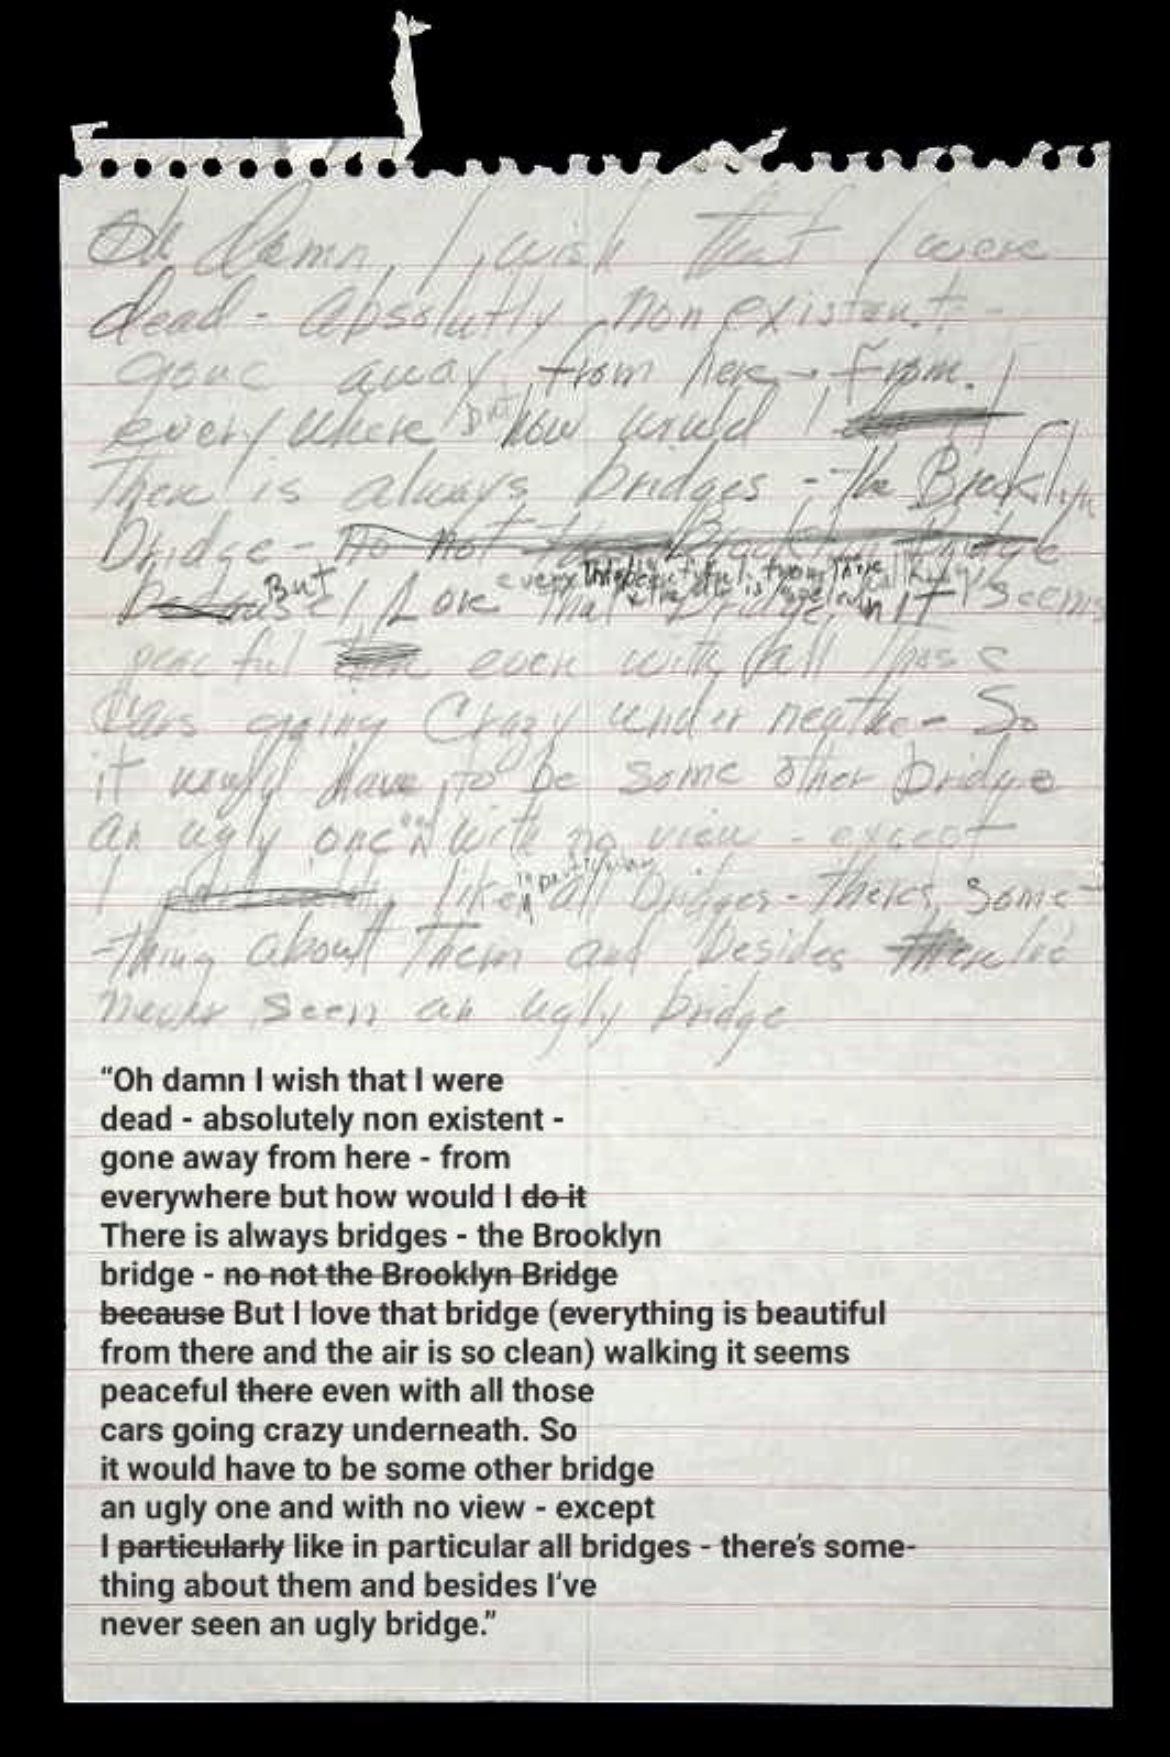 Oh damn, I wish that I were
dead - absolutly non existent -
gone away from here - From
everywhere but how would I
There is always bridges - the Brooklyn
Bridge - No not the Brooklyn Bridge
But everything is beautiful from there
Because I Love that bridge, it seems
peaceful even with all those
Cars going Crazy underneathe - So
it would have to be some other bridge
an ugly one and with no view - except
in particular
I like all bridges - there's some-
thing about them and besides I've
never seen an ugly bridge
“Oh damn I wish that I were
dead - absolutely non existent -
gone away from here - from
everywhere but how would I do it
There is always bridges - the Brooklyn
bridge - no not the Brooklyn Bridge
because But I love that bridge (everything is beautiful
from there and the air is so clean) walking it seems
peaceful there even with all those
cars going crazy underneath. So
it would have to be some other bridge
an ugly one and with no view - except
I particularly like in particular all bridges - there’s some-
thing about them and besides I’ve
never seen an ugly bridge.”